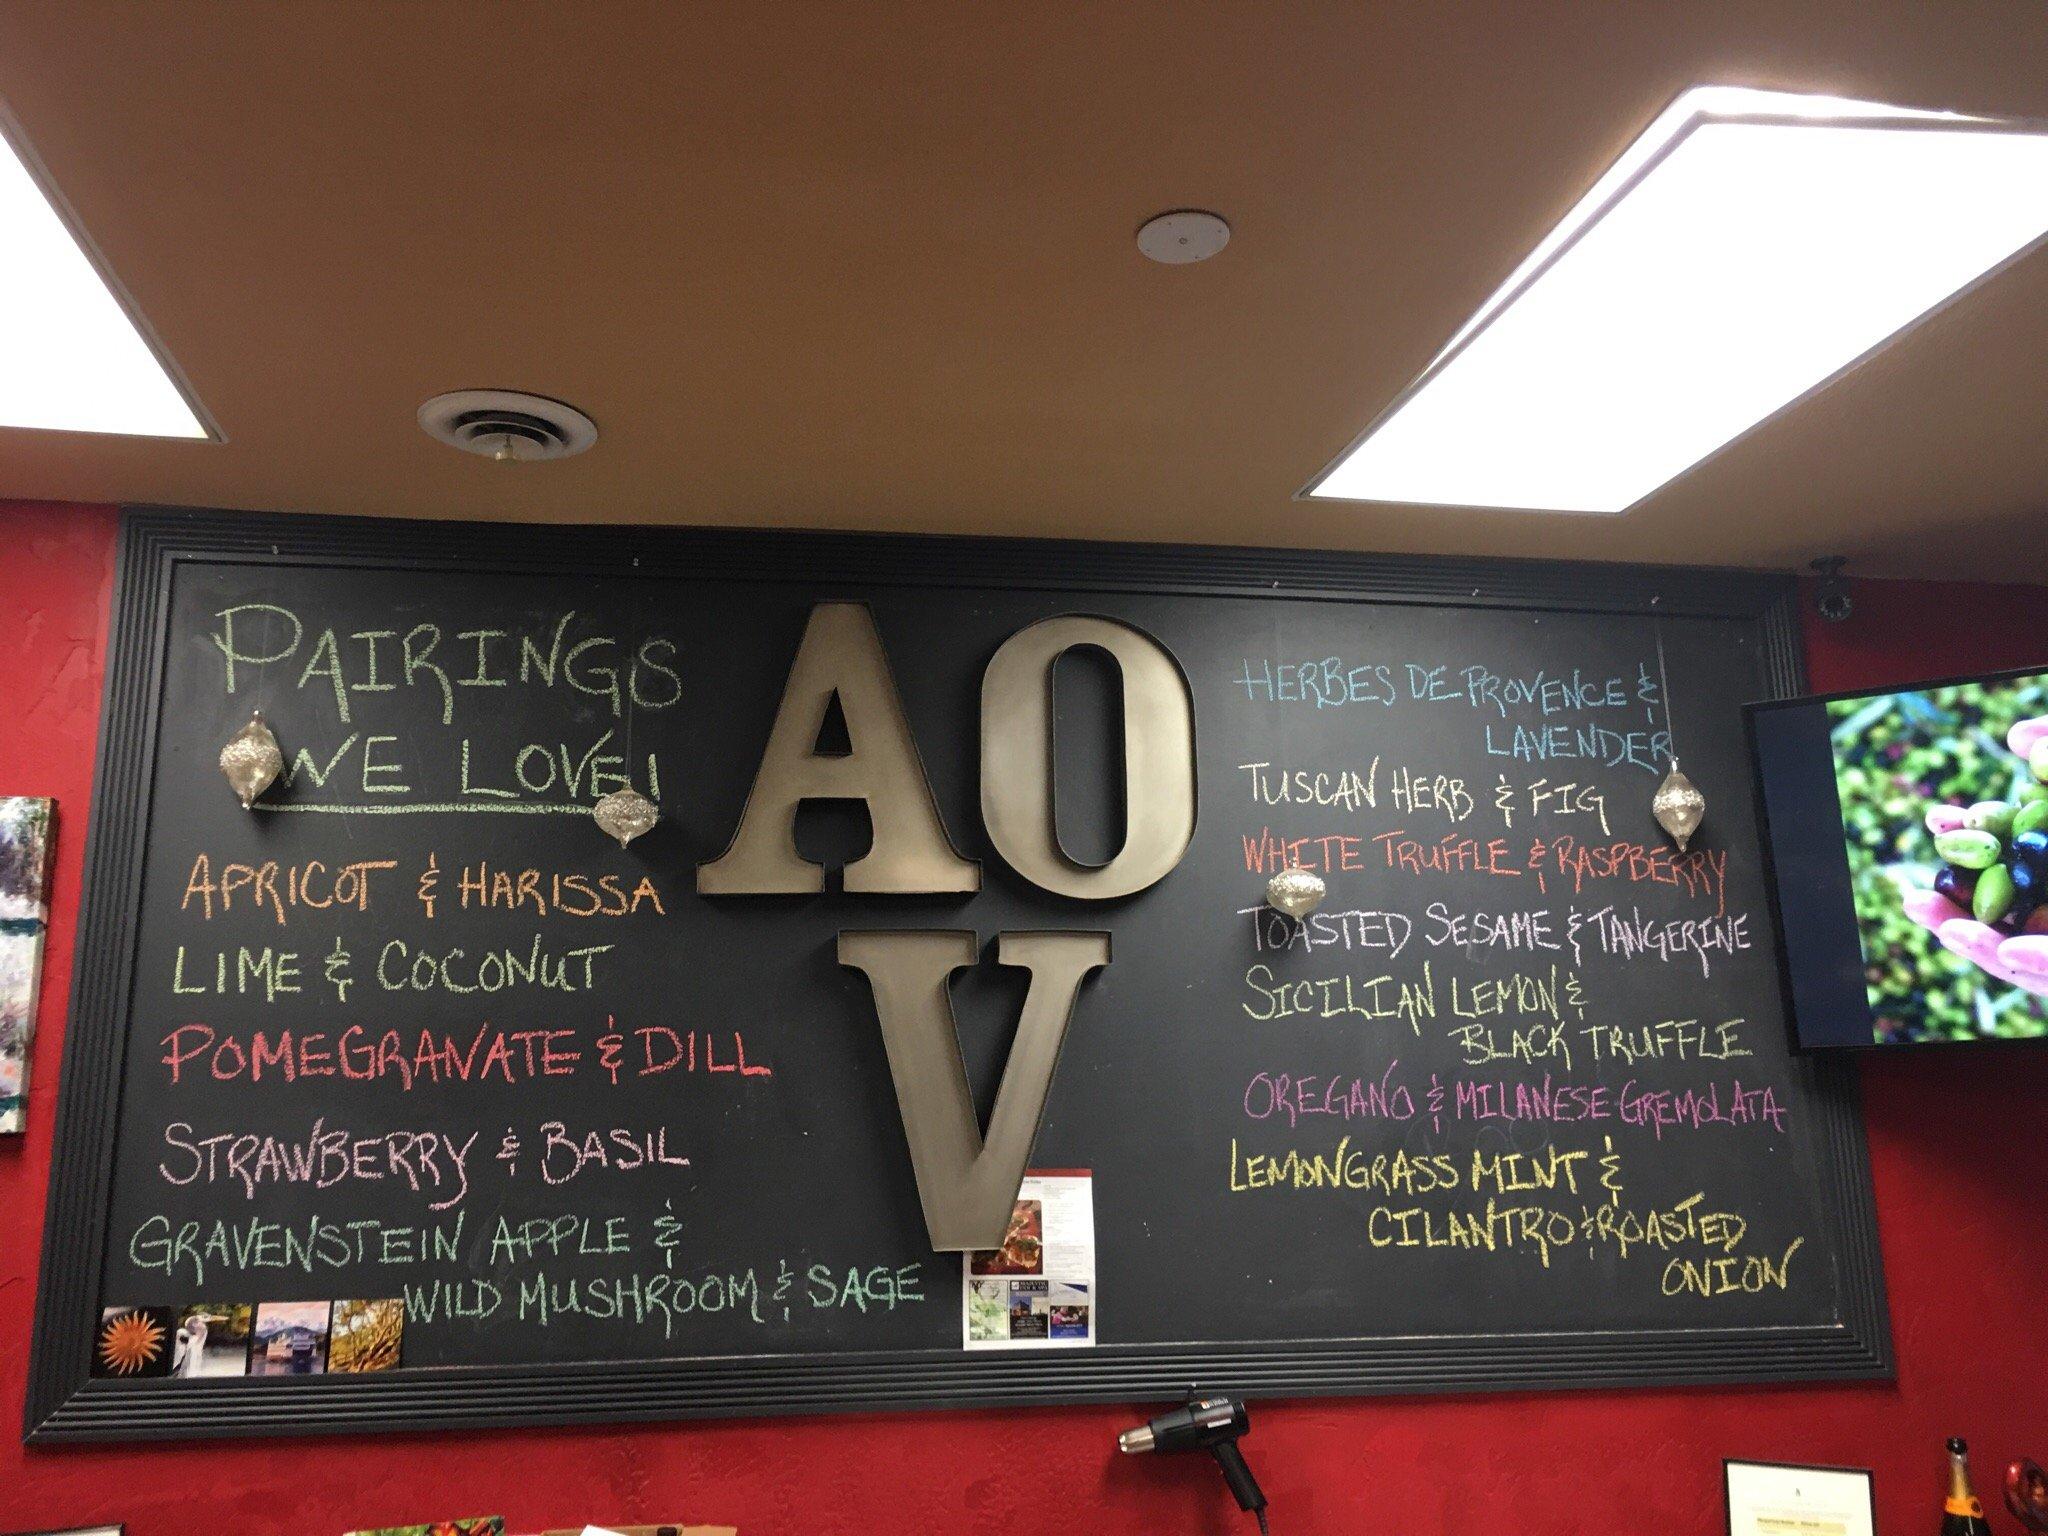 PAIRINGS
WE LOVE!
APRICOT & HARISSA
LIME & COCONUT
POMEGRANATE & DILL
STRAWBERRY & BASIL
GRAVENSTEIN APPLE &
WILD MUSHROOM & SAGE
AO
V
HERBES DE PROVENCE &
LAVENDER
TUSCAN HERB & FIG
WHITE TRUFFLE & RASPBERRY
TOASTED SESAME & TANGERINE
SICILIAN LEMON &
BLACK TRUFFLE
OREGANO & MILANESE GREMOLATA
LEMONGRASS MINT &
CILANTRO & ROASTED
ONION